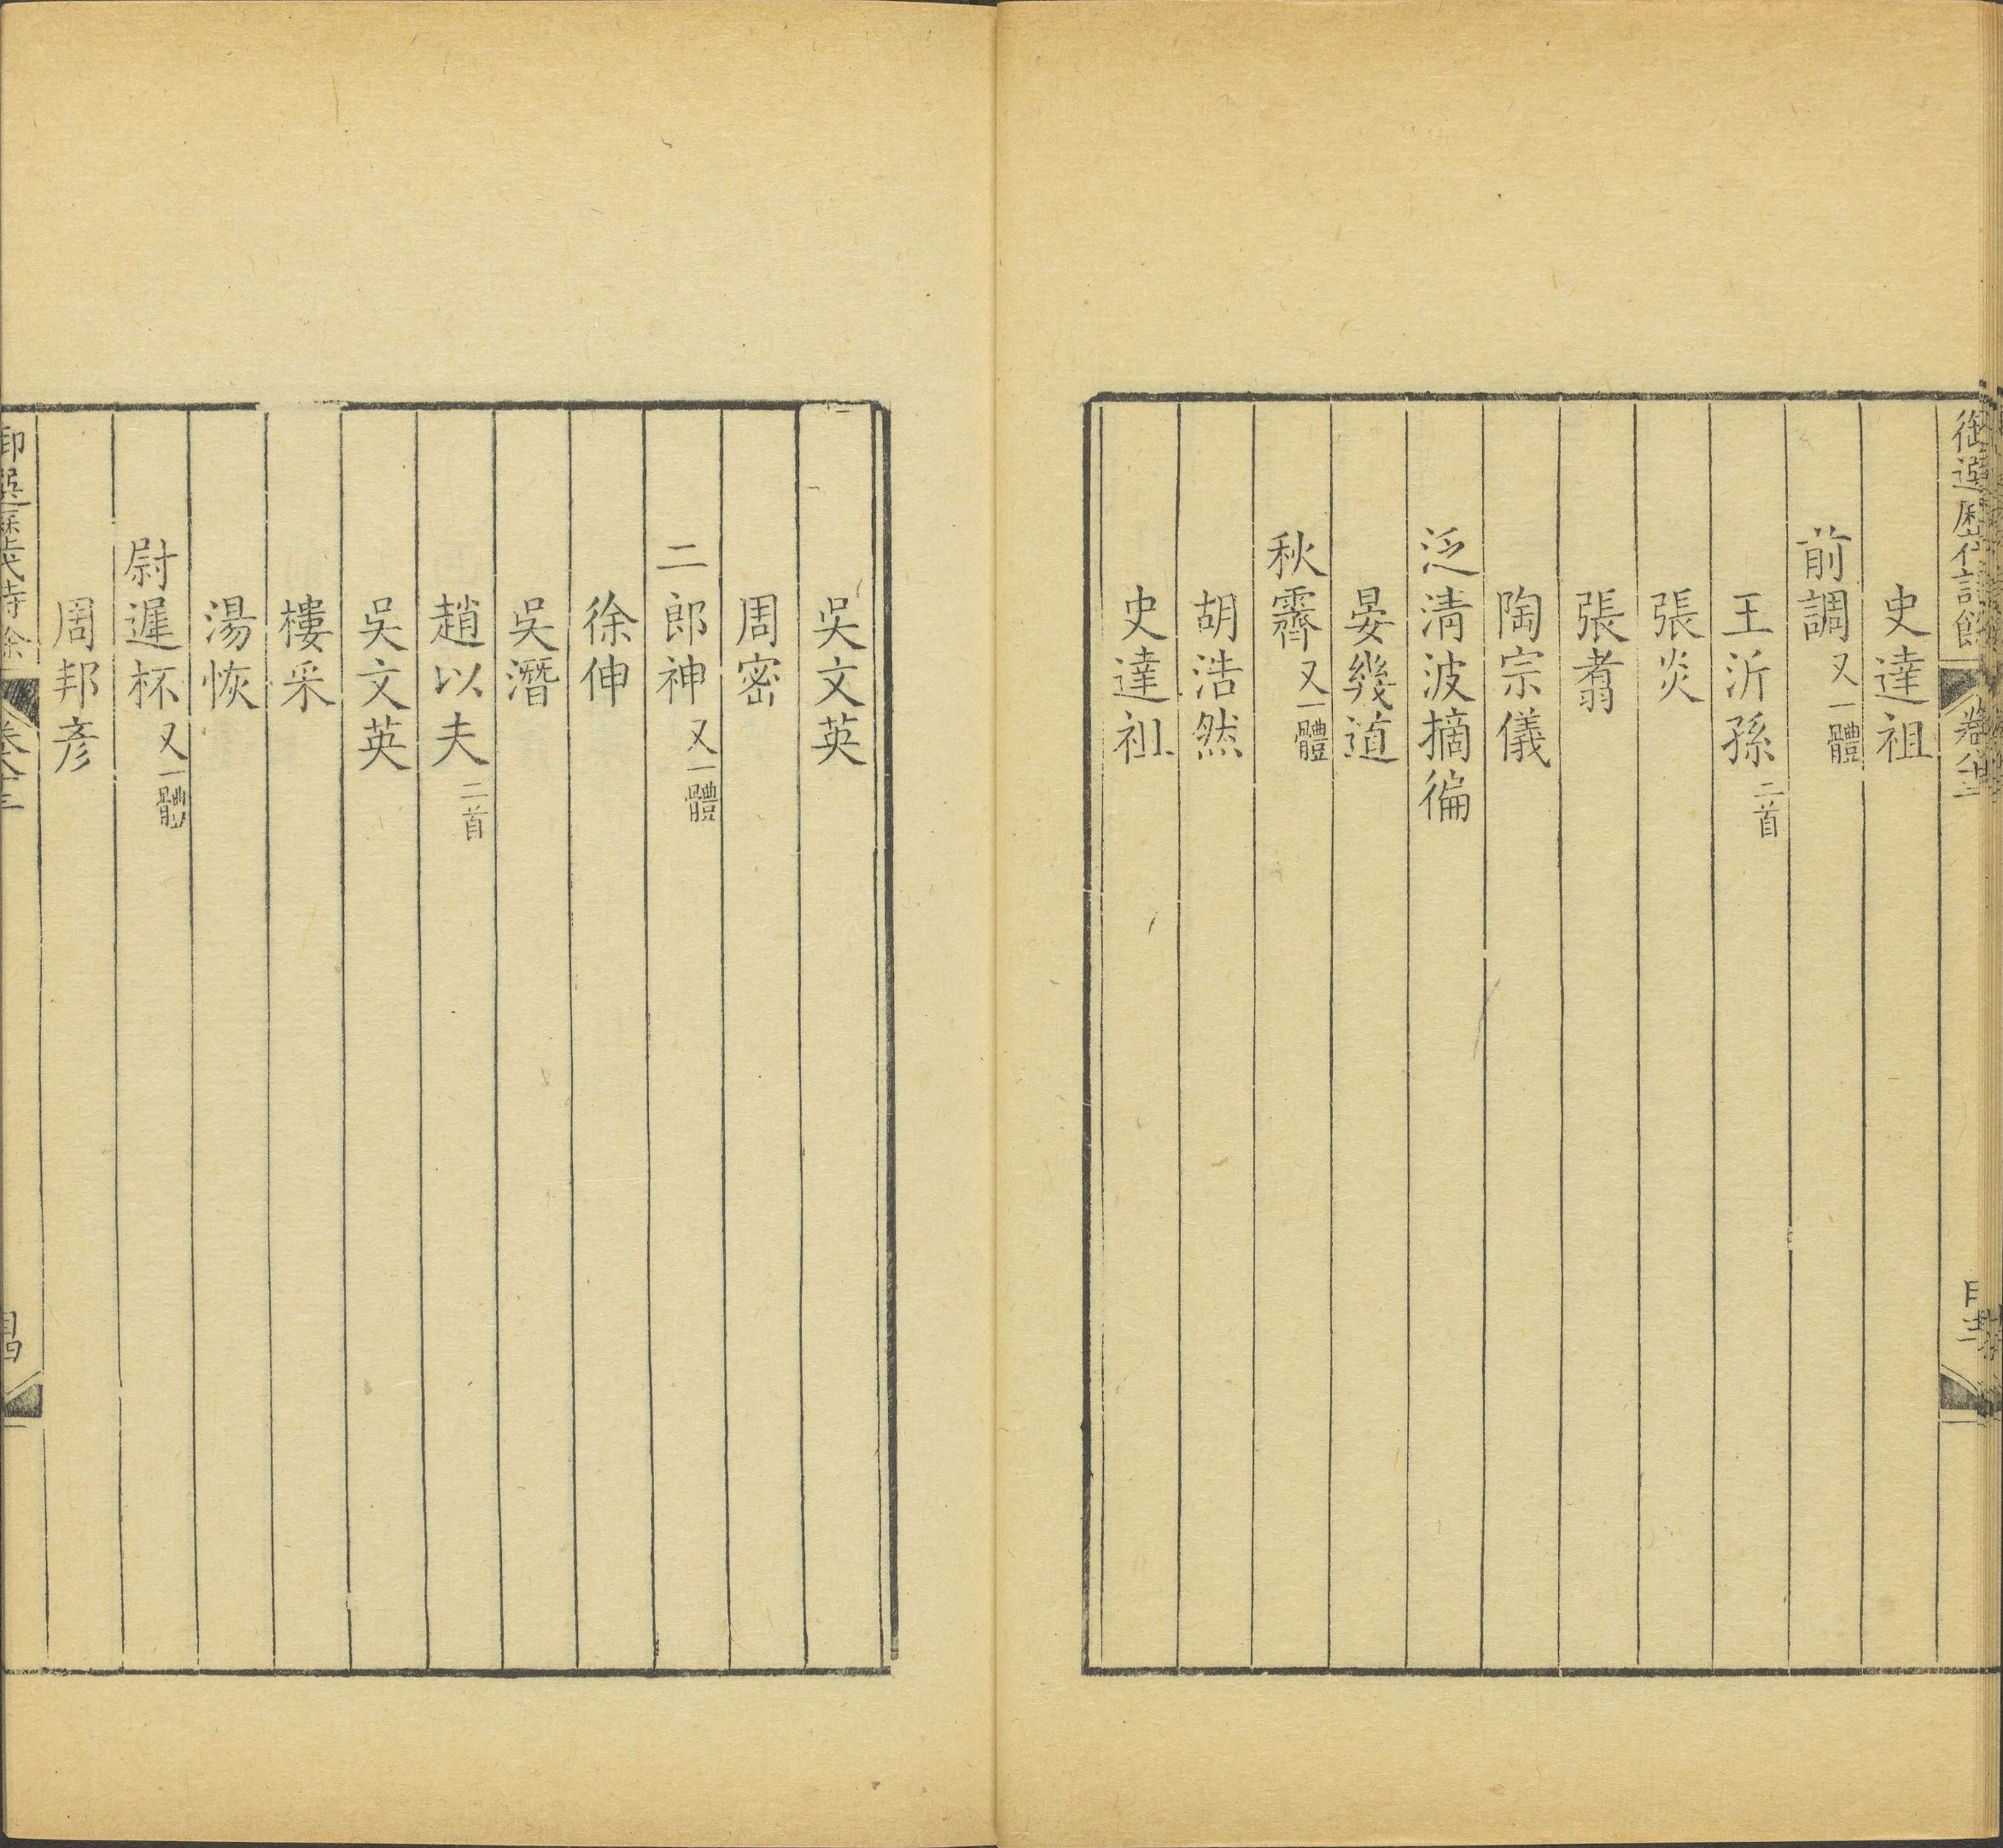 御選歷代詩餘 卷八十三 目三
史達祖
前調又一體
王沂孫二首
張炎
張翥
陶宗儀
泛清波摘徧
晏幾道
秋霽又一體
胡浩然
史達祖
吳文英
周密
二郎神又一體
徐伸
吳潛
趙以夫二首
吳文英
樓采
湯恢
尉遲杯又一體
周邦彦
御選歷代詩餘 卷八十三 目四